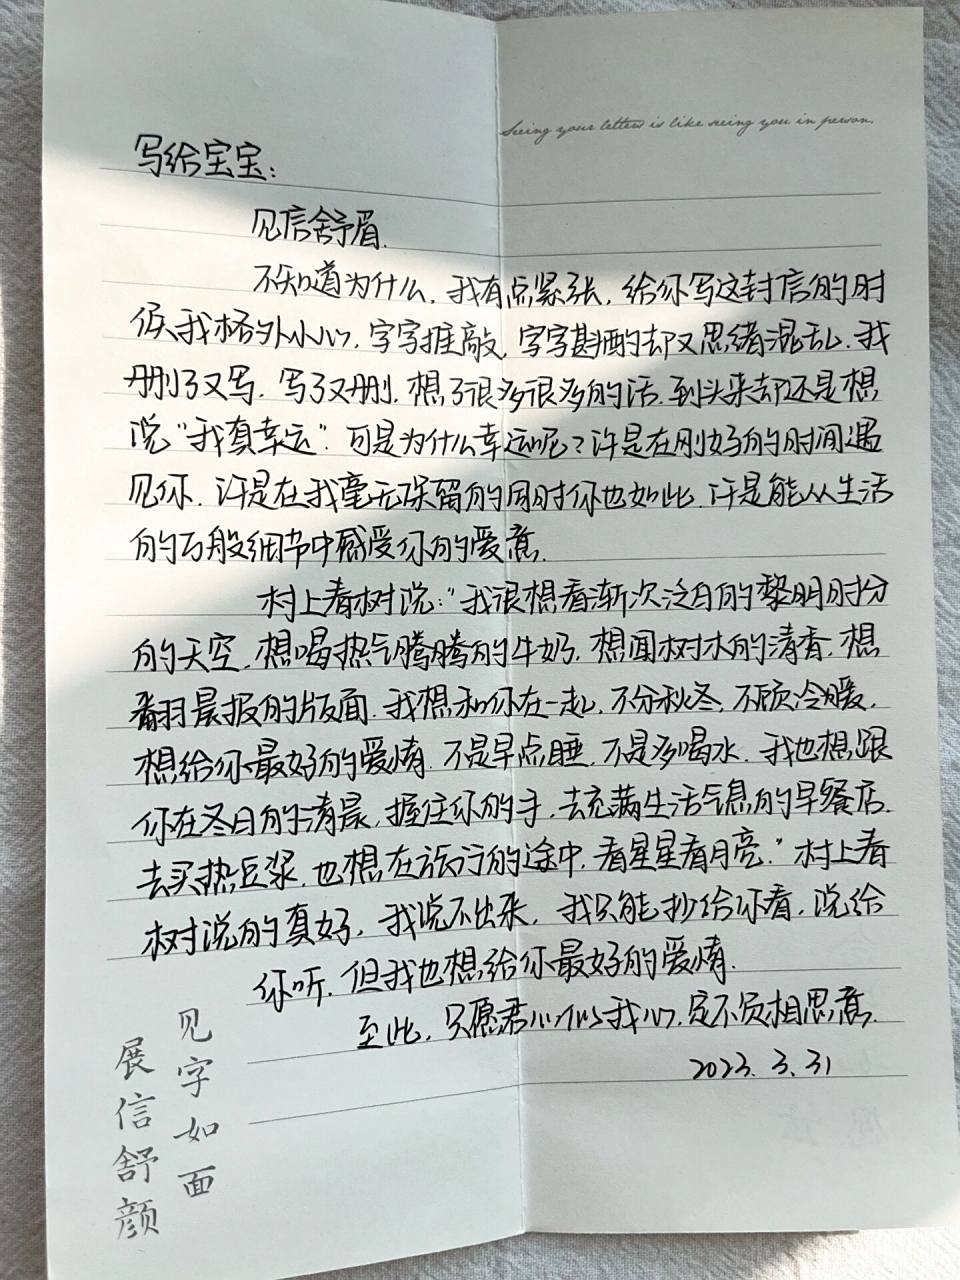 Seeing your letters is like seeing you in person.
写给宝宝：
见信舒眉.
不知道为什么，我有点紧张，给你写这封信的时
候我格外小心，字字推敲，字字斟酌却又思绪混乱.我
删了又写，写了又删，想了很多很多的话，到头来却还是想
说“我真幸运”.可是为什么幸运呢？许是在刚好的时间遇
见你，许是在我毫无保留的同时你也如此，许是能从生活
的万般细节中感受你的爱意.
村上春树说：“我很想看渐次泛白的黎明时分
的天空，想喝热气腾腾的牛奶，想闻树木的清香，想
翻晨报的版面.我想和你在一起，不分秋冬，不顾冷暖，
想给你最好的爱情.不是早点睡，不是多喝水.我也想跟
你在冬日的清晨，握住你的手，去充满生活气息的早餐店，
去买热豆浆，也想在旅行的途中，看星星看月亮.”村上春
树说的真好，我说不出来，我只能抄给你看，说给
你听.但我也想给你最好的爱情.
至此，只愿君心似我心，定不负相思意.
2023.3.31
见字如面
展信舒颜